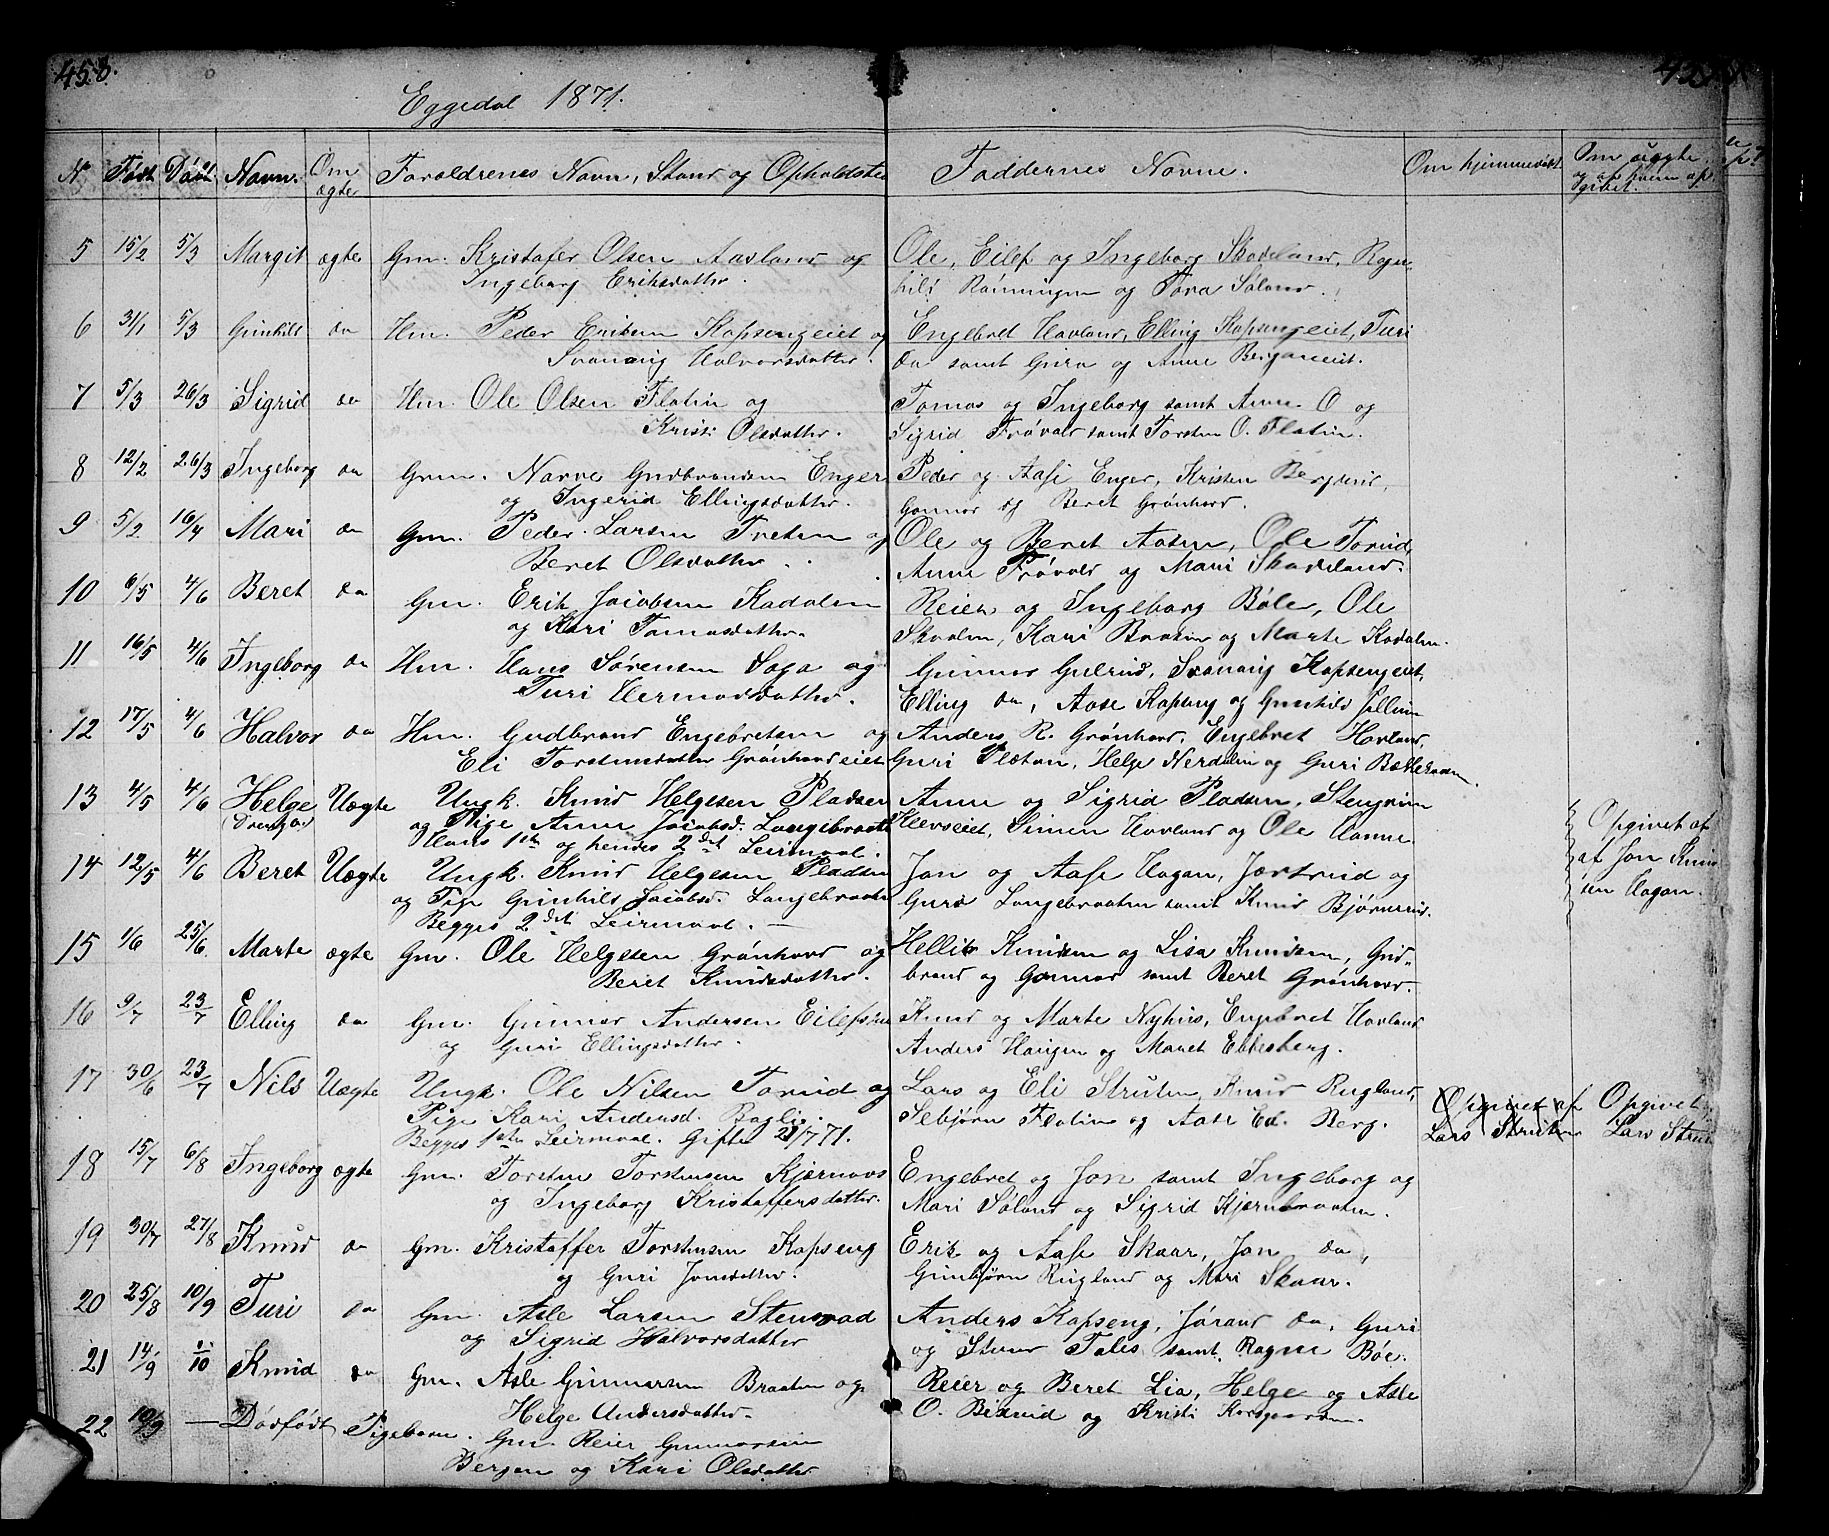 458.
Eggedal 1871.
No Født Døbt Navn. Om ægte Foraldrenes Navn, Stand og Opholdsted Faddernes Navne. Om hjemmedøbt Om uægte og af hvem opgivet.
5 15/2 5/3 Margit ægte Gm. Kristofer Olsen Aavland og Ole, Eilef og Ingeborg Skadeland, Ragn-
Ingeborg Eriksdatter. hild Rønningen og Tora Søland.
6 31/1 5/3 Gunhild da Hm. Peder Eriksen Kopsengeiet og Engebret Hovland, Elling Kopsengeiet, Turi
Svanaug Halvorsdatter. da samt Guro og Anne Berganeiet.
7 5/3 26/3 Sigrid da Hm. Ole Olsen Flatin og Tomas og Ingeborg samt Anne O og
Kristi Olsdatter. Sigrid Frøvold samt Torsten O. Flatin.
8 12/2 26/3 Ingeborg da Gm. Narve Gudbrandsen Enger Peder og Aase Enger, Kristen
og Ingerid Ellingsdatter. Gonnor og Beret Grønhovd.
9 5/2 16/4 Mari da Gm. Peder Larsen Tveten og Ole og Beret Aasen, Ole Torud,
Beret Olsdatter. Anne Frøvold og Mari Skadeland.
10 6/5 4/6 Beret da Gm. Erik Jacobsen Kadalen Reier og Ingeborg Bøle, Ole
og Kari Tomasdatter. Skaalen, Kari Braaten og Marte Kadalen.
11 16/5 4/6 Ingeborg da Hm. Hans Sørensen Saga og Gunnor Gulrud, Svanaug Kopsengeiet,
Turi Hermodsdatter. Elling da, Aase Kopseng og Gunhild
12 17/5 4/6 Halvor da Hm. Gudbrand Engebretsen og Anders R. Grønhovd, Engebret Hovland,
Eli Torstensdatter Grønhovdeiet Guri Plassen, Helge Nerdalen og Guri
13 4/5 4/6 Helge Uægte Ungk. Knud Helgesen Pladsen Anne og Sigrid Pladsen, Stengrim
(Drengen) og Pige Anne Jacobsd. Langebraaten Simen Hovland og Ole
Hans 1ste og hendes 2det Leirmaal. Opgivet af
14 12/5 4/6 Beret Uægte Ungk. Knud Helgesen Pladsen Jon og Aase Hagan, Jørtrud og af Jon Knud-
og Pige Gunhild Jacobsd. Langebraaten Guri Langebraaten samt Knud Bjørnerud. sen Hagan.
Begges 2det Leirmaal.
15 1/6 25/6. Marte ægte Gm. Ole Helgesen Grønhovd og Hellik Knudsen og Lisa Knudsen, Gud-
Beret Knudsdatter. brand og Gonnor samt Beret Grønhovd.
16 9/7 23/7 Elling da Gm. Gunnor Andersen Knud og Marte Nyhus, Engebret Hovland
og Guri Ellingsdatter. Anders Haugen og Maret Ebbesberg.
17 30/6 23/7 Nils Uægte Ungk. Ole Nilsen Torud og Lars og Eli Struten, Knud Rugland, Opgivet af Opgivet
Pige Kari Andersd. Bagli. Sebjørn Flatin og Aase Berg. Lars Struten Lars Strut
Begges 1ste Leirmaal. Gifte 21/7 71.
18 15/7 6/8 Ingeborg ægte Gm. Torsten Torstensen Kjernaas Engebret og Jon samt Ingeborg og
og Ingeborg Kristoffersdatter. Mari Søland og Sigrid Kjernbraaten.
19 30/7 27/8 Knud da Gm. Kristoffer Torstensen Kopseng Erik og Aase Skaar, Jon da,
og Guri Jonsdatter. Gunbjørn Rugland og Mari Skaar.
20 25/8 10/9 Turi da Gm. Asle Larsen Stensrad Anders Kopseng, Jørand da, Guri
og Sigrid Halvorsdatter og Stener samt Ragne Bøe.
21 14/9 1/10 Knud da Gm. Asle Gunnarsen Braaten og Reier og Beret Lia, Helge og Asle
Helge Andersdatter. O. og Kristi
22 10/9 — Dødfødt Pigebarn. Gm. Reier Gunnarsen
Bergan og Kari Olsdatter